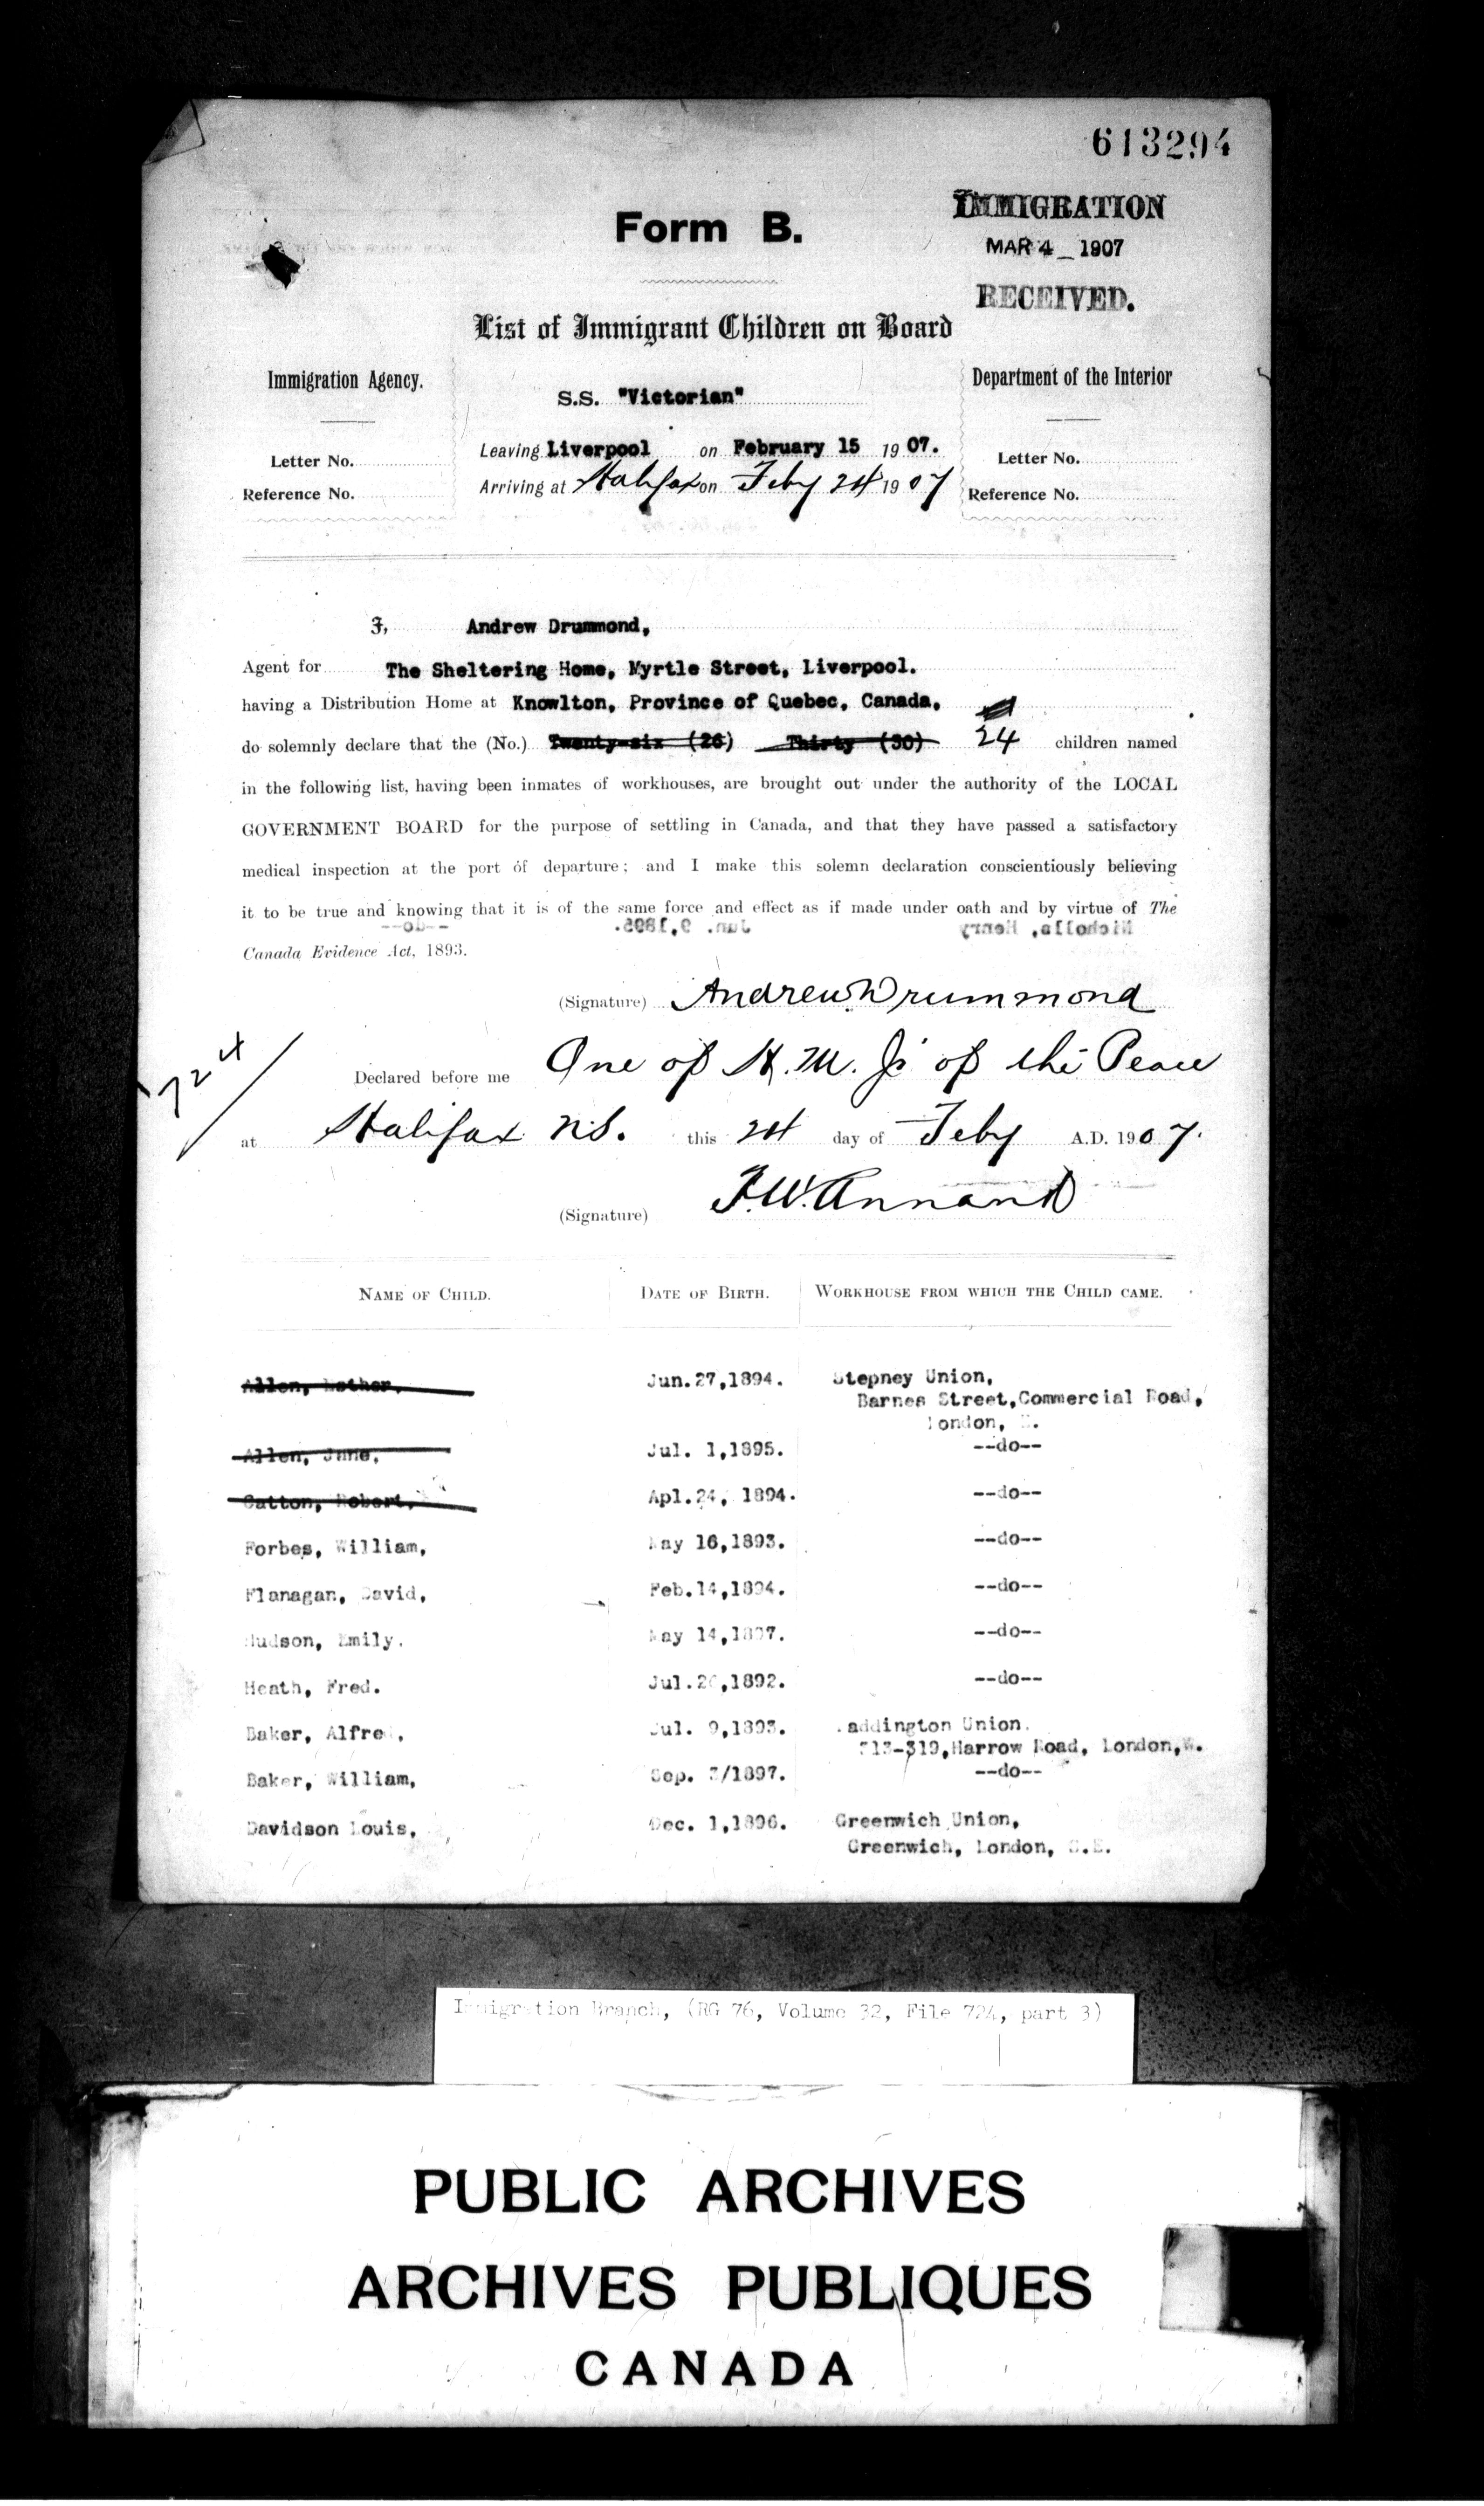 613294
Form B.
IMMIGRATION
MAR 4_1907
RECEIVED.
List of Immigrant Children on Board
Immigration Agency.
S.S. "Victorian"
Department of the Interior
Leaving Liverpool on February 15 1907.
Letter No.
Letter No.
Arriving at Halifax on Feby 24 1907
Reference No.
Reference No.
I, Andrew Drummond,
Agent for The Sheltering Home, Myrtle Street, Liverpool.
having a Distribution Home at Knowlton, Province of Quebec, Canada,
do solemnly declare that the (No.) Twenty-six (26) Thirty (30) 24 children named
in the following list, having been inmates of workhouses, are brought out under the authority of the LOCAL
GOVERNMENT BOARD for the purpose of settling in Canada, and that they have passed a satisfactory
medical inspection at the port of departure; and I make this solemn declaration conscientiously believing
it to be true and knowing that it is of the same force and effect as if made under oath and by virtue of The
--do-- Jan. 9,1895. Nicholls, Henry
Canada Evidence Act, 1893.
(Signature) Andrew Drummond
724
Declared before me One of H.M. Js of the Peace
at Halifax N.S. this 24 day of Feby A.D. 1907.
(Signature) F.W. Annand
NAME OF CHILD. DATE OF BIRTH. WORKHOUSE FROM WHICH THE CHILD CAME.
Allen, Esther, Jun.27,1894. Stepney Union,
Barnes Street,Commercial Road,
London, E.
Allen, Jane, Jul. 1,1895. --do--
Catton, Robert, Apl.24, 1894. --do--
Forbes, William, May 16,1893. --do--
Flanagan, David, Feb.14,1894. --do--
Hudson, Emily. May 14,1897. --do--
Heath, Fred. 1892. --do--
Baker, Alfred, Jul. 9,1893. Paddington Union.
313-319,Harrow Road, London,W.
Baker, William, Sep. 3/1897. --do--
Davidson Louis, Dec. 1,1896. Greenwich Union,
Greenwich, London, S.E.
Immigration Branch, (RG 76, Volume 32, File 724, part 3)
PUBLIC ARCHIVES
ARCHIVES PUBLIQUES
CANADA